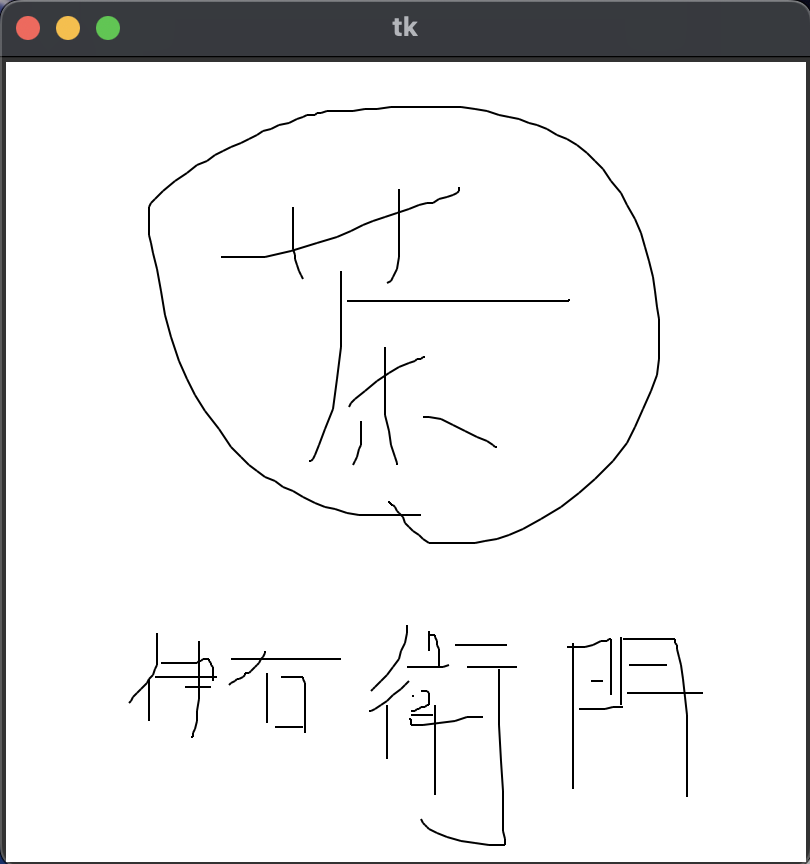 tk
茶
伊右衛門